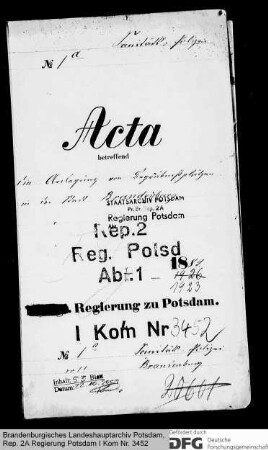 Sanitäts-Polizei
№ 1a
Acta
betreffend
die Anlegung von Begräbnißplätzen
in der Stadt Brandenburg
STAATSARCHIV POTSDAM
Pr. Br. Rep. 2A
Regierung Potsdam
Rep.2
Reg. Potsd
Abt.1
18
1926
1923
Regierung zu Potsdam.
I Kom Nr 3452
№ 1a Sanitäts-Polizei
Brandenburg
Datum
Brandenburgisches Landeshauptarchiv Potsdam,
Rep. 2A Regierung Potsdam I Kom Nr. 3452
Gefördert durch
DFG Deutsche
Forschungsgemeinschaft